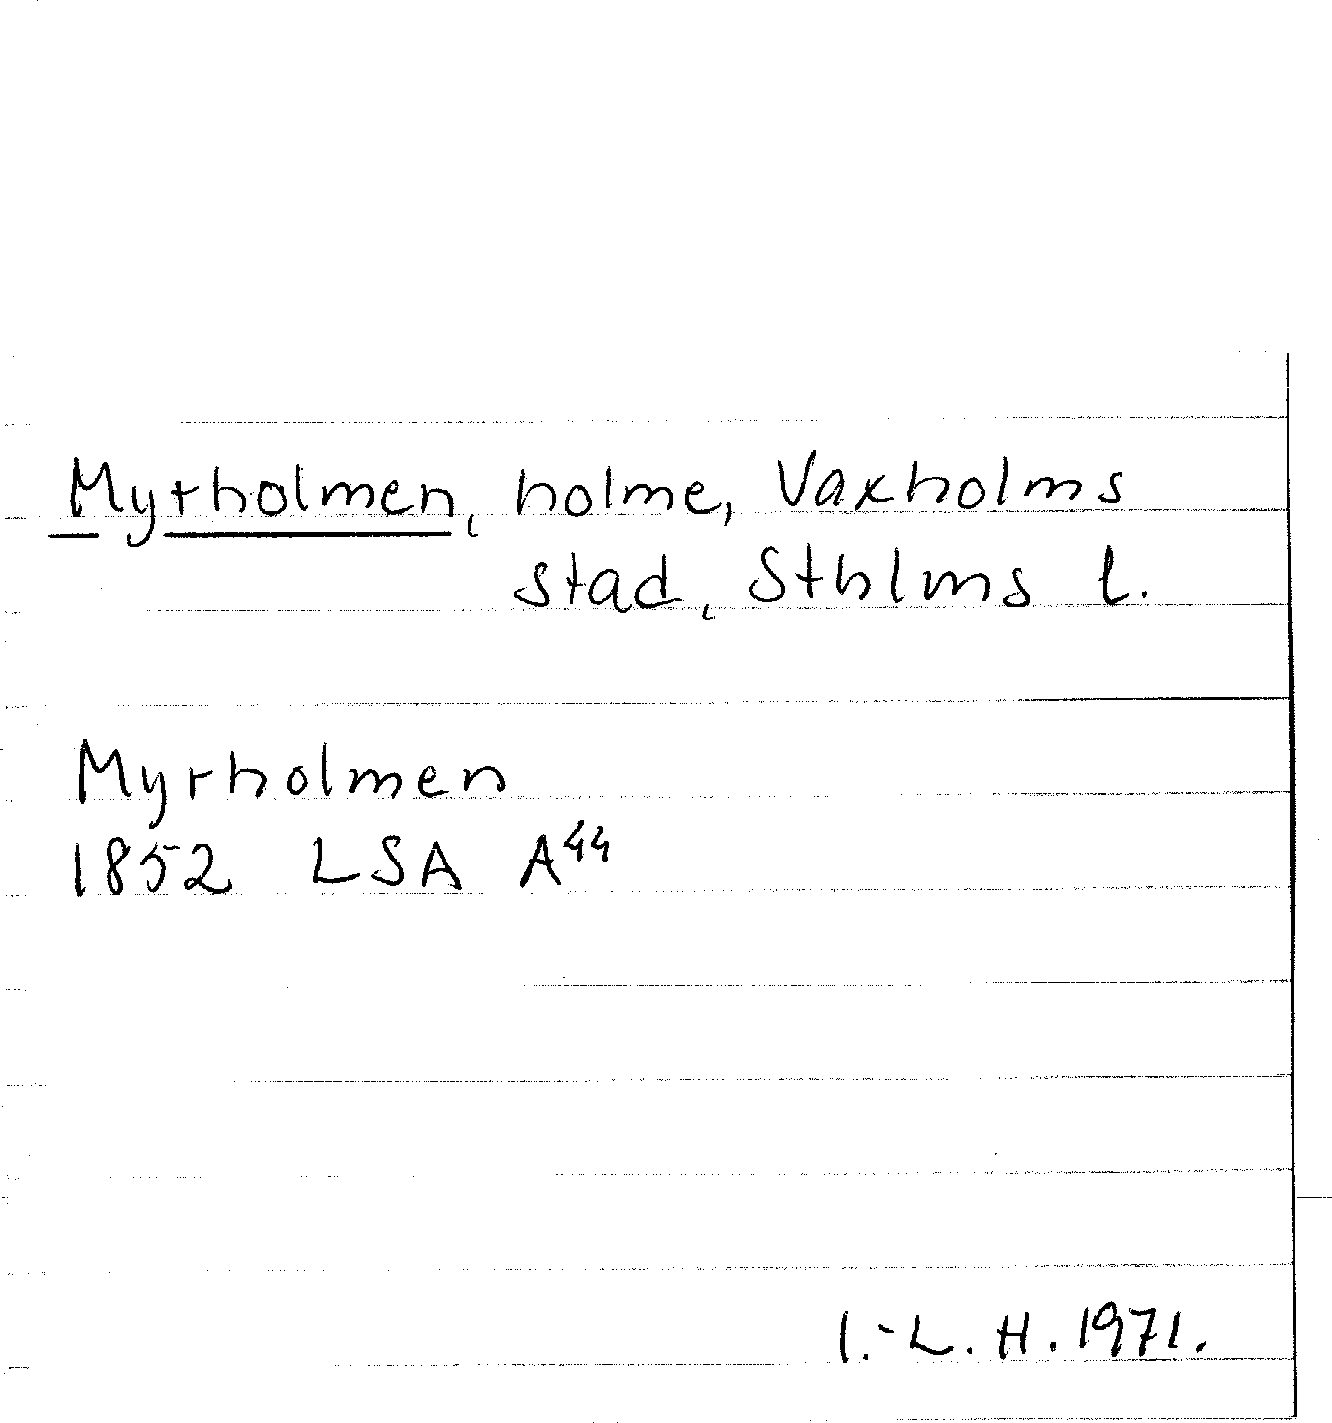 Myrholmen, holme, Vaxholms
stad, Sthlms l.
Myrholmen
1852 LSA A⁴⁴
I.-L. H. 1971.